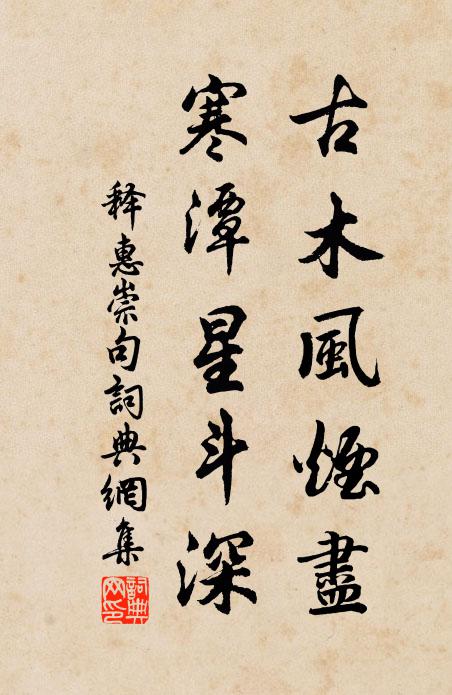 古木風煙盡
寒潭星斗深
释惠崇句詞典網集
詞典网印